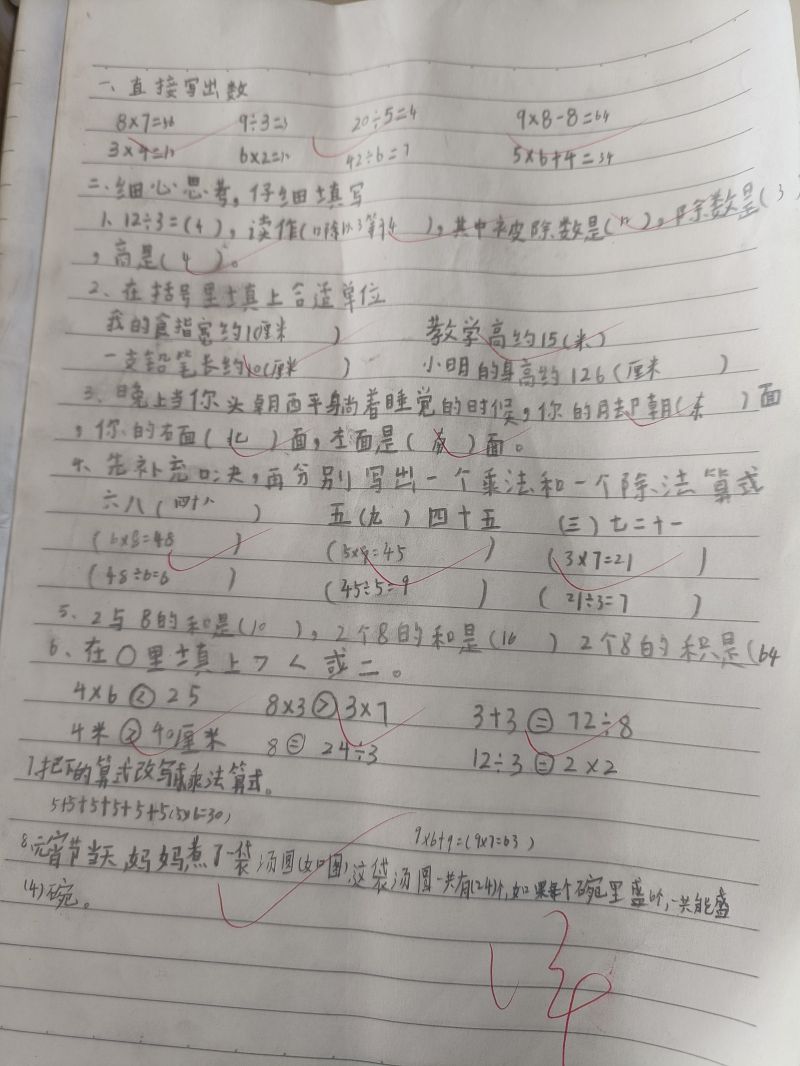 一、直接写出数
8×7=56 9÷3=3 20÷5=4 9×8-8=64
3×4=12 6×2=12 42÷6=7 5×6+4=34
二、细心思考,仔细填写
1、12÷3=(4),读作(12除以3等于4),其中被除数是(12),除数是(3
,高是(4)。
2、在括号里填上合适单位
我的食指宽约10厘米 ) 教学高约15(米)
一支铅笔长约20(厘米 ) 小明的身高约126(厘米 )
3、晚上当你头朝西平躺着睡觉的时候,你的脚朝(东 )面
,你的右面(北 )面,左面是( 南 )面。
4、先补充口决,再分别写出一个乘法和一个除法算式
六八(四十八 ) 五(九 )四十五 (三)七二十一
(6×8=48 ) (5×9=45 ) (3×7=21 )
(48÷6=8 ) (45÷5=9 ) (21÷3=7 )
5、2与8的和是(10 ),2个8的和是(16 ) 2个8的积是(64
6、在○里填上><或=。
4×6<25 8×3>3×7 3+3=72÷8
4米>40厘米 8=24÷3 12÷3=2×2
7.把下的算式改写成乘法算式。
5+5+5+5+5+5(5×6=30)
9×6+9=(9×7=63)
8.元宵节当天,妈妈煮了一袋汤圆(如图)这袋汤圆一共有(24)个,如果每个碗里盛6个,一共能盛
(4)碗。